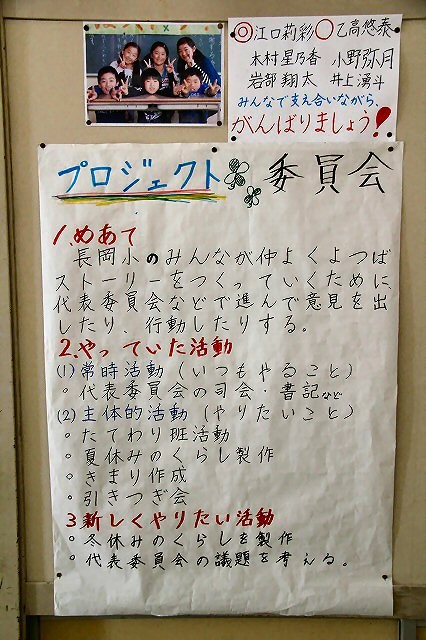 ◎江口莉彩〇乙高悠泰
木村星乃香 小野弥月
岩部翔太 井上湧斗
みんなで支え合いながら、
がんばりましょう!
プロジェクト 委員会
1.めあて
長岡小のみんなが仲よくよつば
ストーリーをつくっていくために、
代表委員会などで進んで意見を出
したり、行動したりする。
2.やっていた活動
(1)常時活動(いつもやること)
。代表委員会の司会・書記など
(2)主体的活動(やりたいこと)
。たてわり班活動
。夏休みのくらし製作
。きまり作成
。引きつぎ会
3新しくやりたい活動
。冬休みのくらしを製作
。代表委員会の議題を考える。